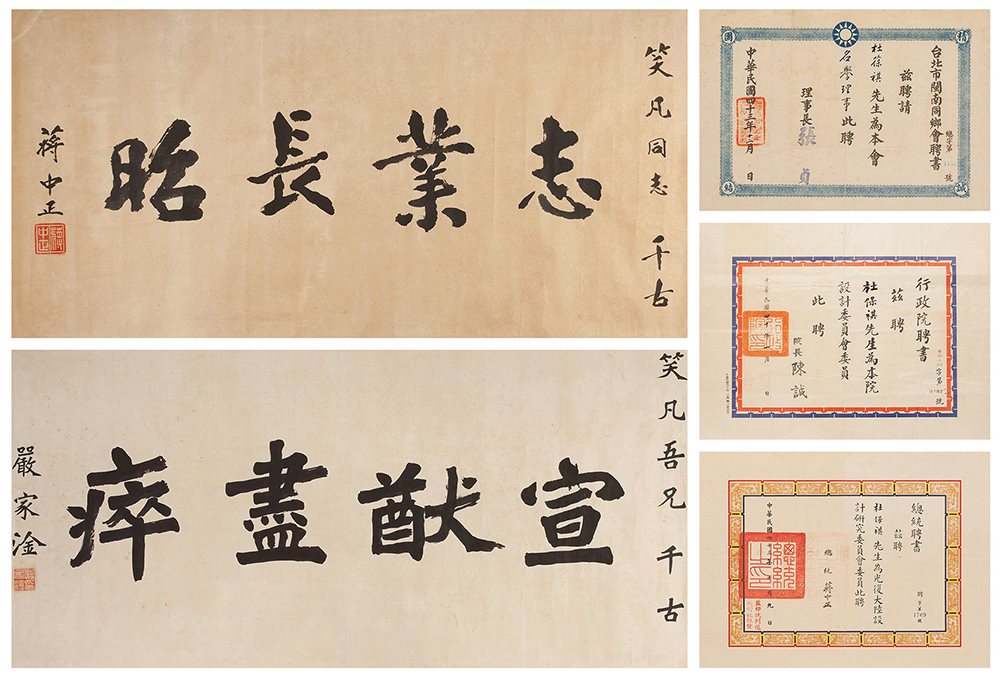 笑凡同志 千古
志業長昭
蔣中正
笑凡吾兄千古
宣猷盡瘁
嚴家淦
精誠團結
台北市閩南同鄉會聘書
總字第 號
茲聘請
杜葆祺先生為本會
名譽理事此聘
理事長 張貞
中華民國四十三年 月 日
行政院聘書
字第 號
茲聘
杜保祺先生為本院
設計委員會委員
此聘
院長 陳誠
中華民國四十年 月 日
總統聘書
聘字第1765號
茲聘
杜保祺先生為光復大陸設
計研究委員會委員此聘
總統 蔣中正
中華民國四十 年 月九日
總統之印